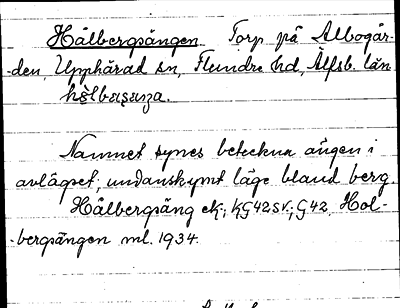 Hålbergsängen Torp på Albogår-
-den, Upphärad sn, Flundre hd, Älfsb. län.
Namnet synes beteckna ängen i
avlägset, undanskymt läge bland berg.
Hålbergsäng ek; KG42SV; G42. Hol-
-bergsängen ml. 1934.